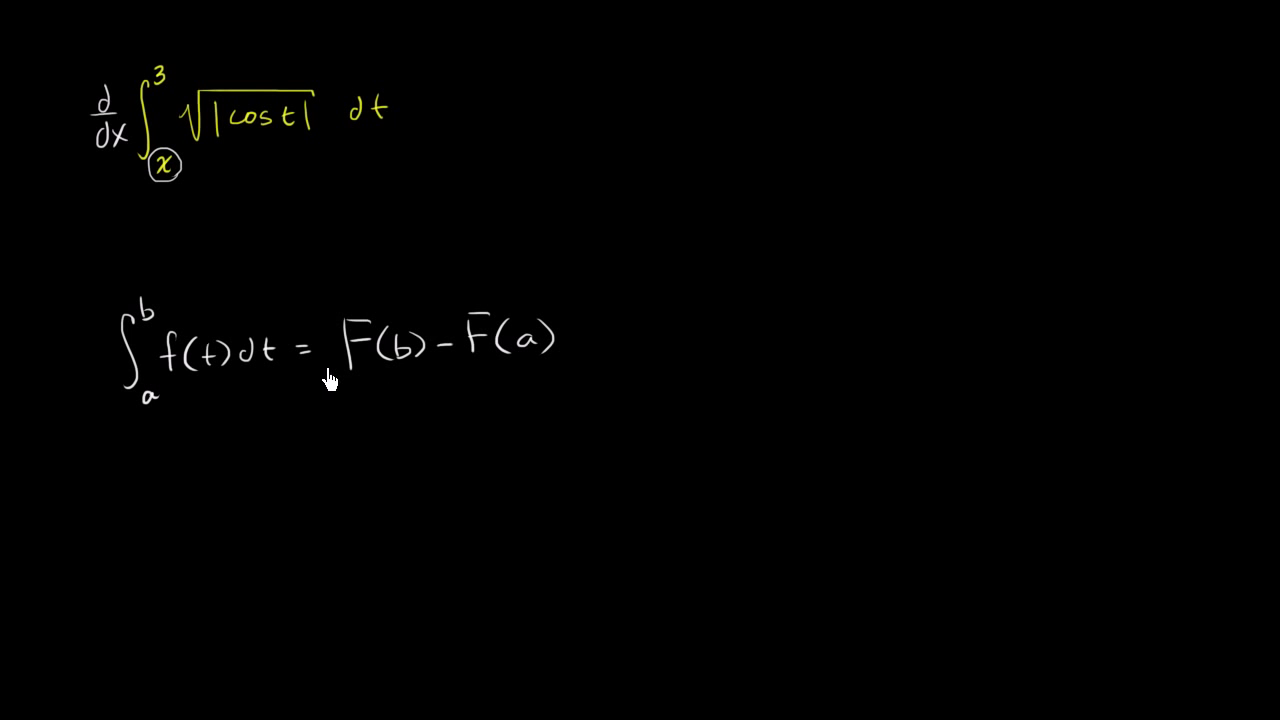 d/dx ∫ₓ³ √|cos t| dt
∫ₐᵇ f(t)dt = F(b) - F(a)